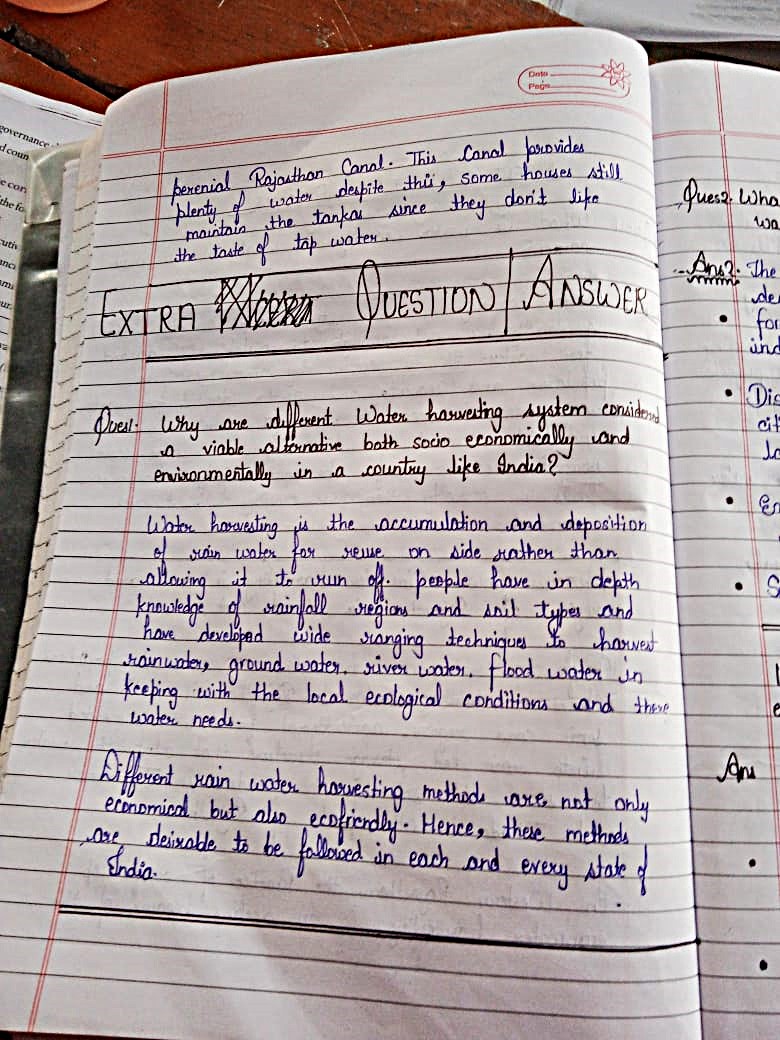 Date
Page
perenial Rajasthan Canal. This Canal provides
plenty of water despite this, some houses still
maintain the tankas since they don't like
the taste of tap water.
EXTRA QUESTION/ANSWER
Ques1. Why are different Water harvesting system considered
a viable alternative both socio economically and
environmentally in a country like India?
Water harvesting is the accumulation and deposition
of rain water for reuse on side rather than
allowing it to run off. people have in depth
knowledge of rainfall regions and soil types and
have developed wide ranging techniques to harvest
rainwater, ground water, river water, flood water in
keeping with the local ecological conditions and there
water needs.
Different rain water harvesting methods are not only
economical but also ecofriendly. Hence, these methods
are desirable to be followed in each and every state of
India.
Ques2. Wha
wa
Ans2. The
de
• for
ind
• Dis
cit
lo
• En
• S
Ans
governance
d coun
e con
the fo